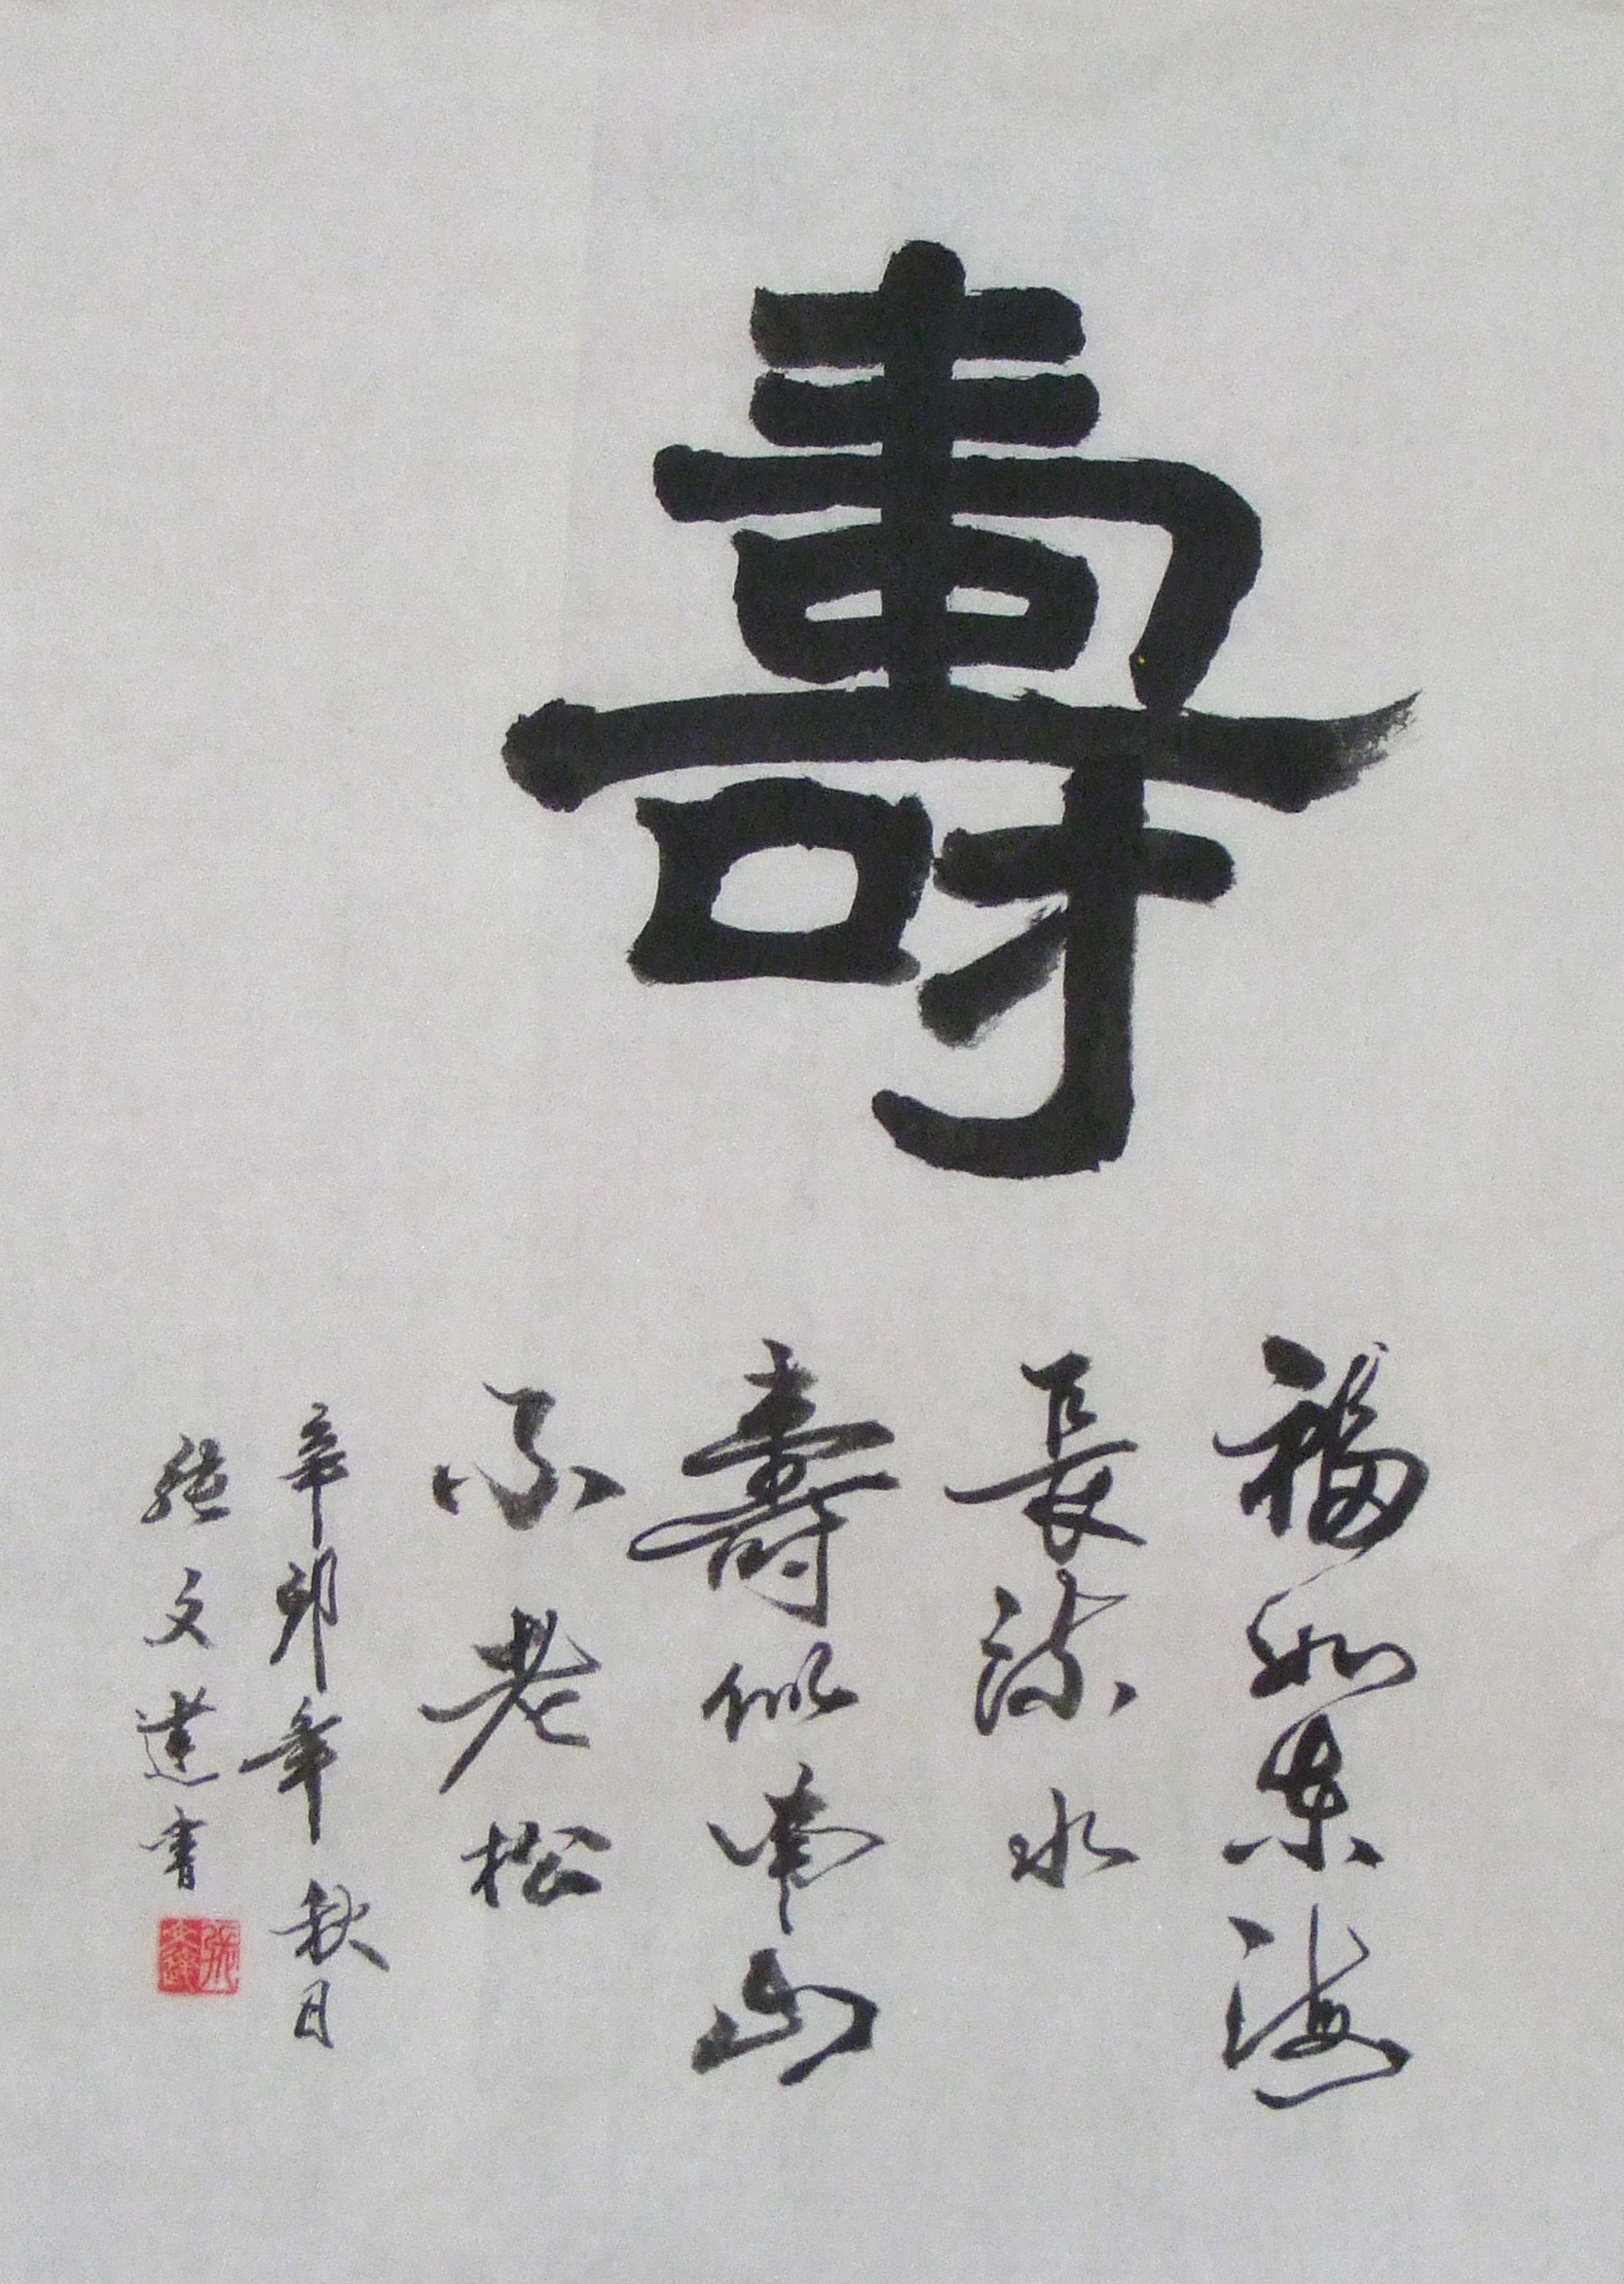 壽
福如東海
長流水
壽似南山
不老松
辛卯年秋日
張文達書
張文達